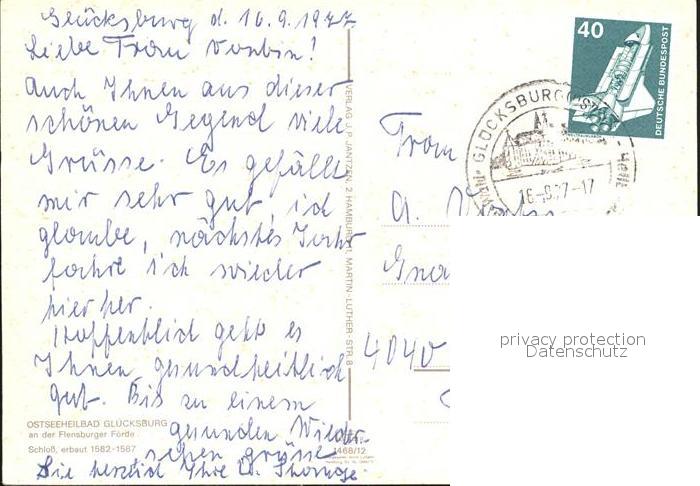 Glücksburg d. 16.9.1977
Liebe Frau
Auch Ihnen aus dieser
schönen Gegend viele
Grüsse. Es gefällt
mir sehr gut, ich
glaube, nächstes Jahr
fahre ich wieder
hierher.
Hoffentlich geht es
Ihnen gesundheitlich
gut. Bis zu einem
gesunden Wieder-
sehen grüsse
Sie herzlich Ihre
OSTSEEHEILBAD GLÜCKSBURG
an der Flensburger Förde
Schloß, erbaut 1582-1587
VERLAG J. P. JANTZEN, 2 HAMBURG MARTIN-LUTHER-STR. 8
468/12
40
DEUTSCHE BUNDESPOST
GLÜCKSBURG
-17
Frau
A.
4040
privacy protection
Datenschutz